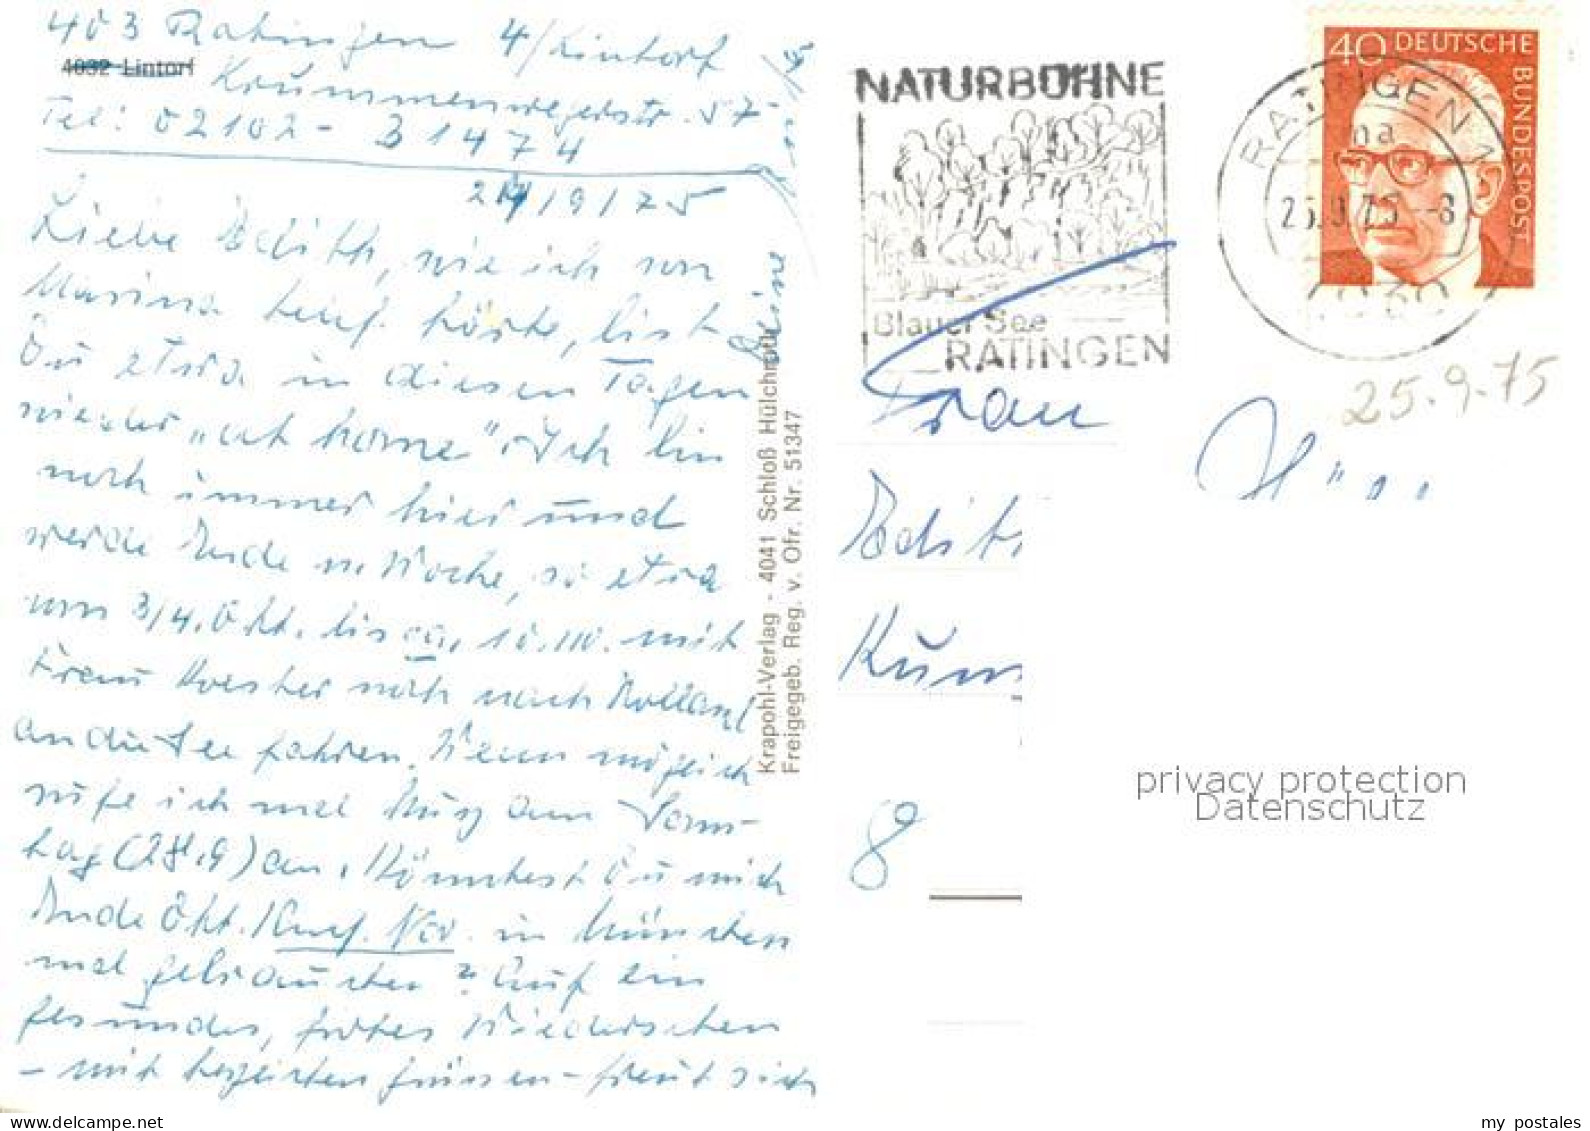 403 Ratingen 4/Lintorf
4032 Lintorf
Krummenwegerstr. 57
Tel: 02102-31474
24/9/75
Liebe Edith, wie ich von
Marina tel. hörte, bist
Du etwa in diesen Tagen
wieder „at home". Ich bin
noch immer hier und
werde Ende n. Woche, so etwa
um 3/4. Okt. bis ca. 10.10. mit
Frau Koester noch nach Holland
an die See fahren. Wenn möglich
rufe ich mal kurz am Sams-
tag (28.9) an. Könntest Du mich
Ende Okt./Anf. Nov. in München
mal gebrauchen? Auf ein
gesundes, frohes Wiedersehen
- mit herzlichen Grüssen - freut sich
Deine
Krapohl-Verlag - 4041 Schloß Hülchrath
Freigegeb. Reg. v. Dfr. Nr. 51347
NATURBÜHNE
Blauer See
RATINGEN
RATINGEN 1
na
25.9.75--8
4030
40 DEUTSCHE
BUNDESPOST
25.9.75
Frau
Edit
Kun
8
privacy protection
Datenschutz
my postales